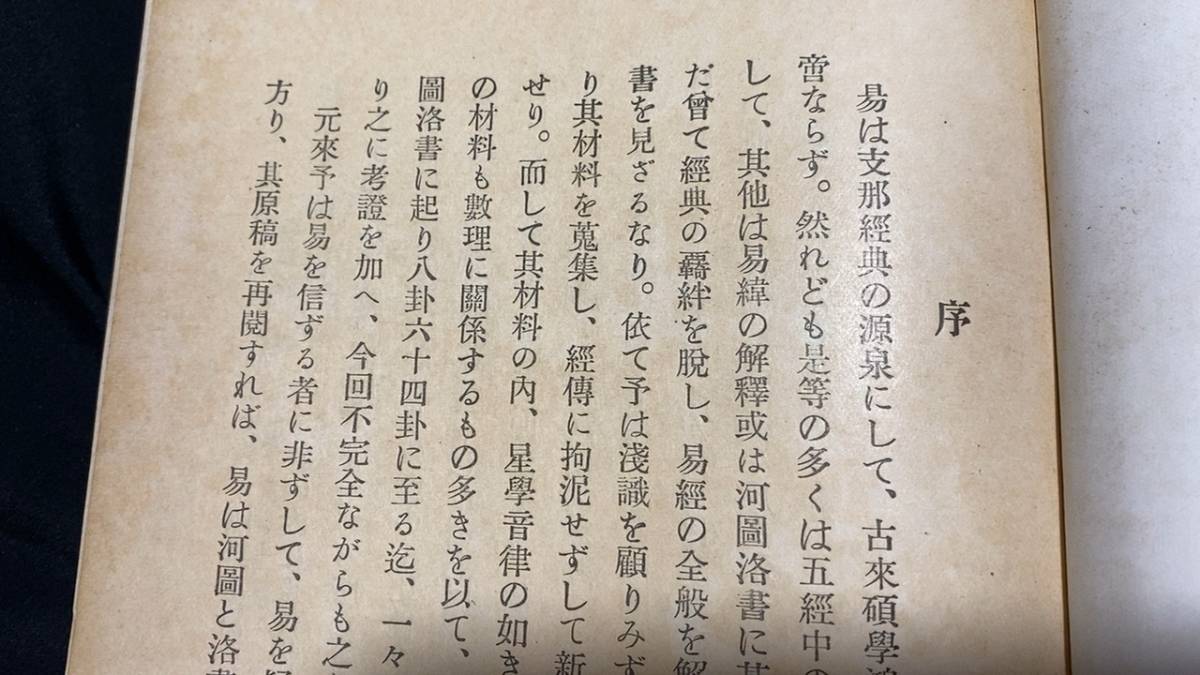 序
易は支那經典の源泉にして、古來碩學
啻ならず。然れども是等の多くは五經中の
して、其他は易緯の解釋或は河圖洛書に其
だ曾て經典の羈絆を脫し、易經の全般を解
書を見ざるなり。依て予は淺識を顧りみず
り其材料を蒐集し、經傳に拘泥せずして新
せり。而して其材料の內、星學音律の如き
の材料も數理に關係するもの多きを以て、
圖洛書に起り八卦六十四卦に至る迄、一々
り之に考證を加へ、今回不完全ながらも之
元來予は易を信ずる者に非ずして、易を
方り、其原稿を再閱すれば、易は河圖と洛書